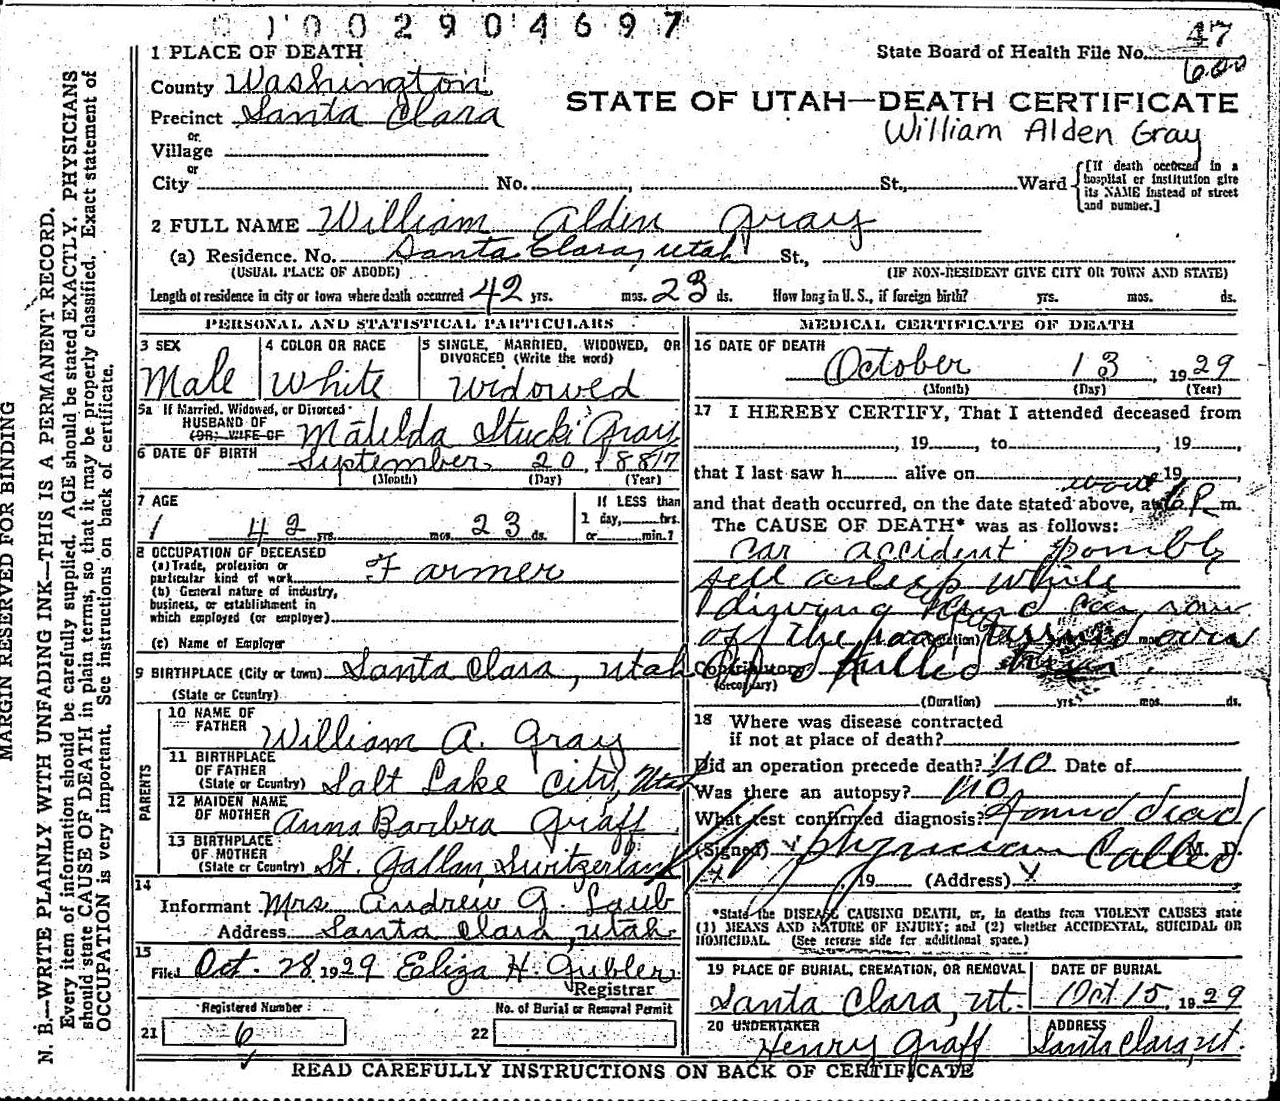 0 1 0 0 2 9 0 4 6 9 7
1 PLACE OF DEATH
State Board of Health File No. 47
600
County Washington
STATE OF UTAH—DEATH CERTIFICATE
Precinct Santa Clara
William Alden Gray
or
Village
or
City No. , St., Ward
[If death occurred in a hospital or institution give its NAME instead of street and number.]
2 FULL NAME William Alden Gray
(a) Residence. No. Santa Clara, Utah St.,
(USUAL PLACE OF ABODE) (IF NON-RESIDENT GIVE CITY OR TOWN AND STATE)
Length of residence in city or town where death occurred 42 yrs. mos. 23 ds. How long in U. S., if foreign birth? yrs. mos. ds.
PERSONAL AND STATISTICAL PARTICULARS
3 SEX 4 COLOR OR RACE 5 SINGLE, MARRIED, WIDOWED, OR DIVORCED (Write the word)
Male White Widowed
5a If Married, Widowed, or Divorced
HUSBAND OF
(OR) WIFE OF Matilda Stucki Gray
6 DATE OF BIRTH September 20, 1887
(Month) (Day) (Year)
7 AGE If LESS than
1 day, hrs.
42 yrs. mos. 23 ds. or min.?
8 OCCUPATION OF DECEASED
(a) Trade, profession or particular kind of work Farmer
(b) General nature of industry,
business, or establishment in
which employed (or employer)
(c) Name of Employer
9 BIRTHPLACE (City or town) Santa Clara, Utah
(State or Country)
PARENTS
10 NAME OF FATHER William A. Gray
11 BIRTHPLACE OF FATHER
(State or Country) Salt Lake City, Utah
12 MAIDEN NAME OF MOTHER Anna Barbra Graff
13 BIRTHPLACE OF MOTHER
(State or Country) St. Gallan Switzerland
14
Informant Mrs Andrew G. Laub
Address Santa Clara, Utah
15
Filed Oct. 28, 1929 Eliza H. Gubler
Registrar
Registered Number No. of Burial or Removal Permit
21 6 22
MEDICAL CERTIFICATE OF DEATH
16 DATE OF DEATH
October 13, 1929
(Month) (Day) (Year)
17 I HEREBY CERTIFY, That I attended deceased from
, 19 to , 19 ,
that I last saw h alive on , 19
and that death occurred, on the date stated above, at about 6 P m.
The CAUSE OF DEATH* was as follows:
Car accident possibly
fell asleep while
driving car
off the road turned over
killed
Contributory
(Secondary)
(Duration) yrs. mos. ds.
18 Where was disease contracted
if not at place of death?
Did an operation precede death? No Date of
Was there an autopsy? No
What test confirmed diagnosis? Found dead
(Signed) physician Called M. D.
, 19 (Address)
*State the DISEASE CAUSING DEATH, or, in deaths from VIOLENT CAUSES state
(1) MEANS AND NATURE OF INJURY; and (2) whether ACCIDENTAL, SUICIDAL OR
HOMICIDAL. (See reverse side for additional space.)
19 PLACE OF BURIAL, CREMATION, OR REMOVAL DATE OF BURIAL
Santa Clara, Ut. Oct 15, 1929
20 UNDERTAKER ADDRESS
Henry Graff Santa Clara, Ut.
READ CAREFULLY INSTRUCTIONS ON BACK OF CERTIFICATE
MARGIN RESERVED FOR BINDING
N. B.—WRITE PLAINLY WITH UNFADING INK—THIS IS A PERMANENT RECORD.
Every item of information should be carefully supplied. AGE should be stated EXACTLY. PHYSICIANS
should state CAUSE OF DEATH in plain terms, so that it may be properly classified. Exact statement of
OCCUPATION is very important. See instructions on back of certificate.